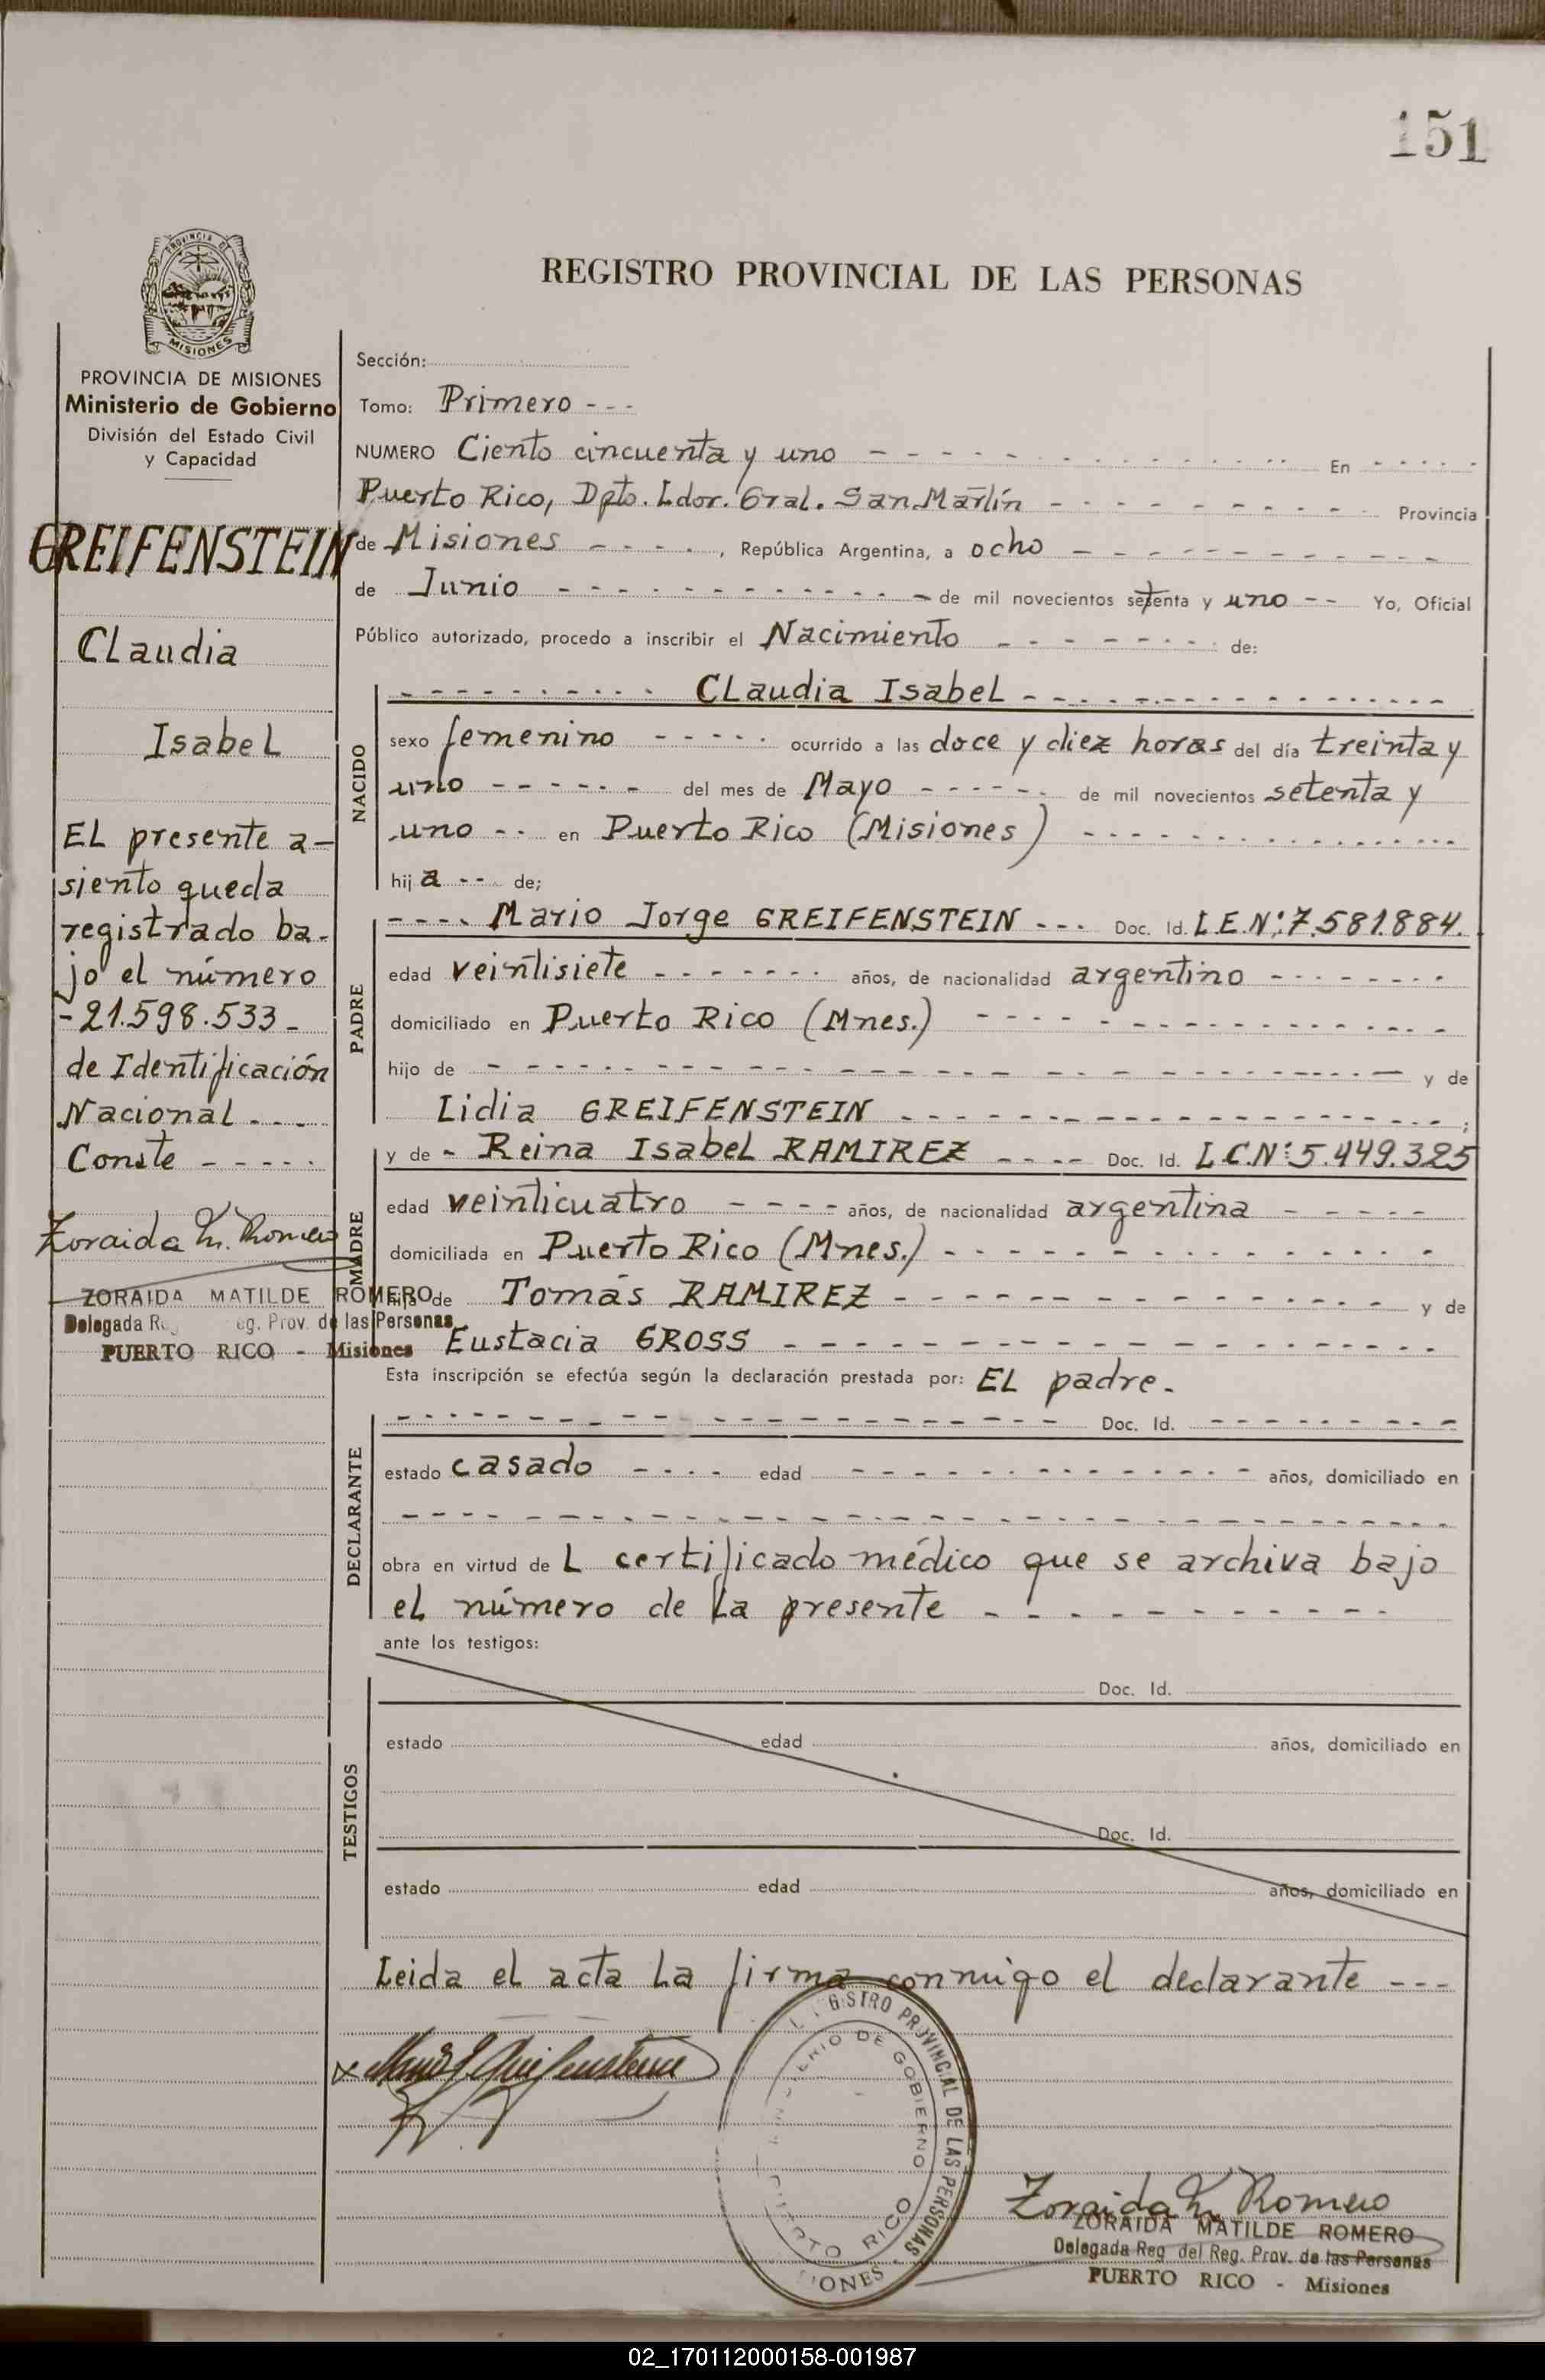 151
PROVINCIA DE
MISIONES
REGISTRO PROVINCIAL DE LAS PERSONAS
PROVINCIA DE MISIONES
Ministerio de Gobierno
División del Estado Civil
y Capacidad
GREIFENSTEIN
Claudia
Isabel
El presente a-
siento queda
registrado ba-
jo el número
-21.598.533-
de Identificación
Nacional ---
Conste -----
Zoraida M. Romero
ZORAIDA MATILDE ROMERO
Delegada Reg. Prov. de las Personas
PUERTO RICO - Misiones
Sección:
Tomo: Primero ---
NUMERO Ciento cincuenta y uno - - - En - - -
Puerto Rico, Dpto. Ldor. Gral. San Martín - - - Provincia
de Misiones - - - , República Argentina, a ocho - - -
de Junio - - - de mil novecientos setenta y uno -- Yo, Oficial
Público autorizado, procedo a inscribir el Nacimiento - - - de:
NACIDO
- - - Claudia Isabel - - -
sexo femenino - - - ocurrido a las doce y diez horas del día treinta y
uno - - - del mes de Mayo - - - de mil novecientos setenta y
uno -- en Puerto Rico (Misiones) - - -
hij a -- de;
PADRE
---- Mario Jorge GREIFENSTEIN --- Doc. Id. L.E.Nº:7.581.884.
edad veintisiete - - - años, de nacionalidad argentino - - -
domiciliado en Puerto Rico (Mnes.) - - -
hijo de - - - y de
Lidia GREIFENSTEIN - - - ;
MADRE
y de - Reina Isabel RAMIREZ ---- Doc. Id. L.C.Nº:5.449.325
edad veinticuatro - - - - años, de nacionalidad argentina - - -
domiciliada en Puerto Rico (Mnes.) - - -
hija de Tomás RAMIREZ - - - y de
Eustacia GROSS - - -
Esta inscripción se efectúa según la declaración prestada por: El padre.
DECLARANTE
- - - Doc. Id. - - -
estado casado - - - - edad - - - años, domiciliado en
- - -
obra en virtud de l certificado médico que se archiva bajo
el número de la presente - - -
ante los testigos:
TESTIGOS
Doc. Id.
estado edad años, domiciliado en
Doc. Id.
estado edad años, domiciliado en
Leida el acta la firma conmigo el declarante ---
GISTRO PROVINCIAL DE LAS PERSONAS
DE GOBIERNO
RICO
IONES
Zoraida M. Romero
ZORAIDA MATILDE ROMERO
Delegada Reg del Reg. Prov. de las Personas
PUERTO RICO - Misiones
02_170112000158-001987